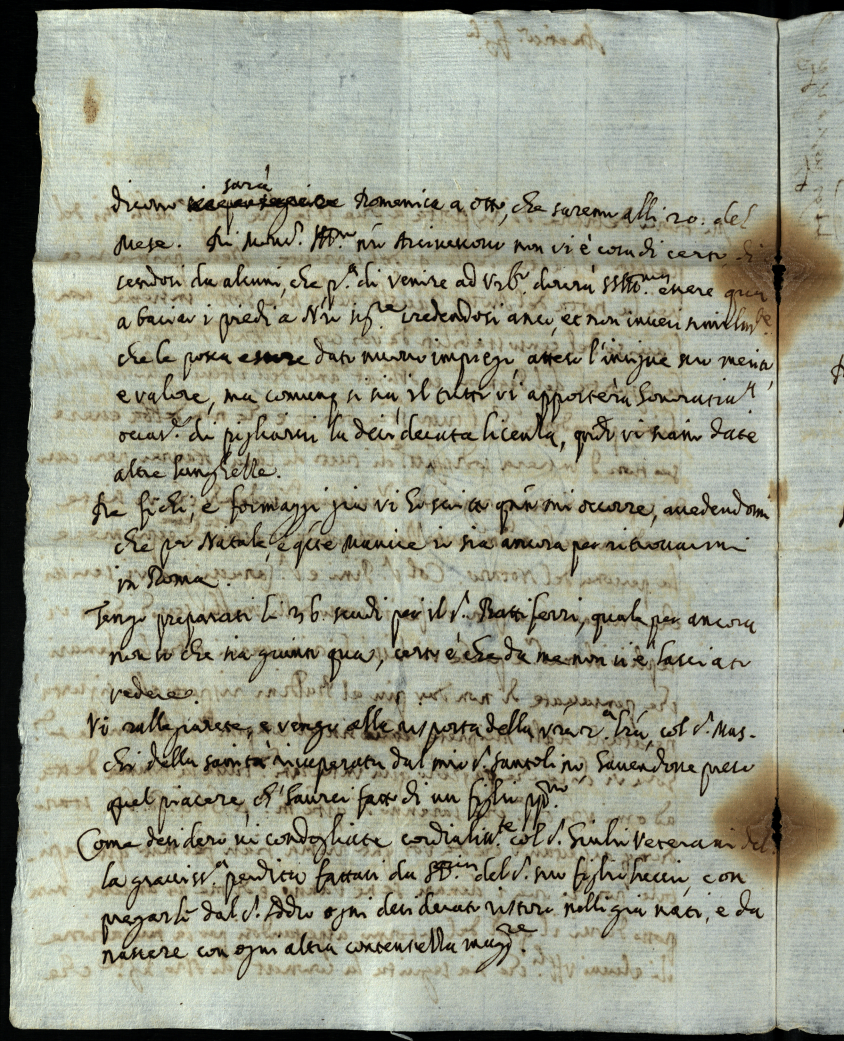 dicono sarà Domenica a otto, che saremo alli 20. del
Mese. Di Mons.r Ill.mo nro Arcivescovo non vi è cosa di certo, di
cendosi da alcuni, che p.a di venire ad Urb.o dovrà essere qua
a baciar i piedi a N'ro Sig.re credendosi anco, et non inveri simil.te
che le possa essere dato nuovo impiego atteso l'insigne suo merito,
e valore, ma comunq si sia, il tutto vi apporterà
occas.e di pigliarvi la desiderata licenza, qndo vi siano date
altre lunghezze.
De fichi, e formaggi già vi ho scritto qnto mi occorre, avedendomi
che per Natale, e qste Mancie io sia ancora per ritrovarmi
in Roma.
Tengo preparati li 36 scudi per il S.r Battiferri, quale per ancora
non so che sia giunto qua, certo è che da me non si è lasciato
vedere.
Vi rallegrarete, e vengo alla risposta della vra l'ra, col S.r Mas-
chi della sanità ricuperata dal mio S.r Santolino, havendone preso
quel piacere, ch'haurei fatto di un figlio pp.rio
Come desidero vi condogliate cordialiss.te col S.r Giulio Veterani del
la graviss.a perdita fattasi da del S.r suo figlio, e con
pregarle dal S.r Iddio ogni desiderato ristoro nelli già nati, e da
nascere con ogni altra contentezza magg.re